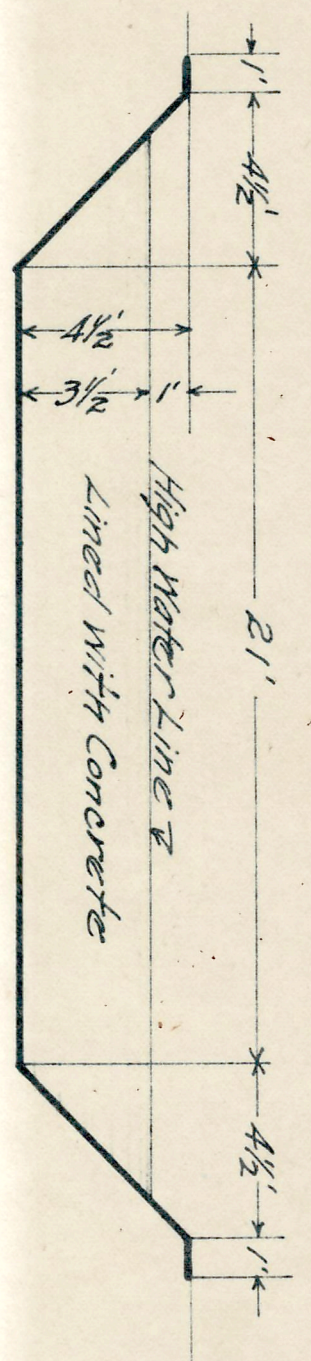 1' 4½' 21' 4½' 1'
4½'
3½' 1'
High Water Line
Lined With Concrete